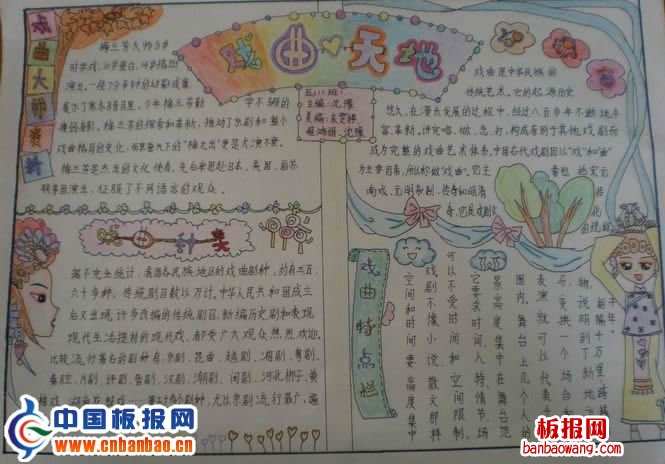 戏曲大师资料
梅兰芳大师8岁
时学戏,10岁登台,14岁搭班
演出。一段7分多钟的动影成像
展示了寒冬腊月里,少年梅兰芳勤学不辍的
瘦弱身影。梅兰芳的探索和革新,推动了京剧和整个
戏曲格局的变化,而享誉天下的“梅之出”更是大演不衰。
梅兰芳是杰出的文化使者,先后率团赴日本、美国、前苏
联等国演出,征服了不同语言的观众。
戏曲♥天地
五(1)班:
主编:沈豫
沈豫
戏曲是中华民族的
传统艺术。它的起源历史
悠久,在漫长发展的过程中,经过八百多年不断地丰
富、革新,讲究唱、做、念、打,构成有别于其他戏剧而
成为完整的戏曲艺术体系。中国古代戏剧因以“戏”和“曲”
为主要因素,所以称做“戏曲”。它主要包括宋元
南戏、元明杂剧、传奇和明清传奇,
戏曲种类
据不完全统计,我国各民族地区的戏曲剧种,约有三百
六十多种,传统剧目数以万计。中华人民共和国成立
后又出现许多改编的传统剧目,新编历史剧和表现
现代生活提材的现代戏,都受广大观众热烈欢迎。
比较流行著名的剧种有:京剧、昆曲、越剧、湘剧、粤剧、
秦腔、川剧、评剧、晋剧、汉剧、潮剧、闽剧、河北梆子、黄
梅戏、
五十多个剧种,尤以京剧流行最广,遍
戏曲特点栏
千年。
相隔千万里,跨越
物,说明到了新地方
马,更换一个场合和人
表演就可以代表千军万
围内。舞台上几个人的
景高度集中在舞台范
它要求时间、人特、情节、场
可以不受时间和空间限制,
戏剧不像小说、散文那样
空间和时间要高度集中
中国板报网
www.cnbanbao.cn
板报网
www.banbaowang.com